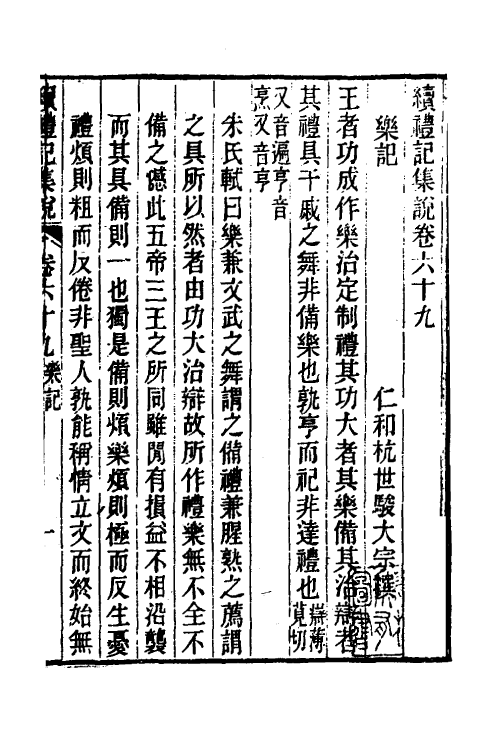 續禮記集說卷六十九
樂記
仁和杭世駿大宗譔
王者功成作樂治定制禮其功大者其樂備其治辯者
其禮具干戚之舞非備樂也孰亨而祀非達禮也辯薄莧切
又音遍亨音
烹又音亨
朱氏軾曰樂兼文武之舞謂之備禮兼腥熟之薦謂
之具所以然者由功大治辯故所作禮樂無不全不
備之憾此五帝三王之所同雖閒有損益不相沿襲
而其具備則一也獨是備則煩樂煩則極而反生憂
禮煩則粗而反倦非聖人孰能稱情立文而終始無
續禮記集說 卷六十九樂記 一